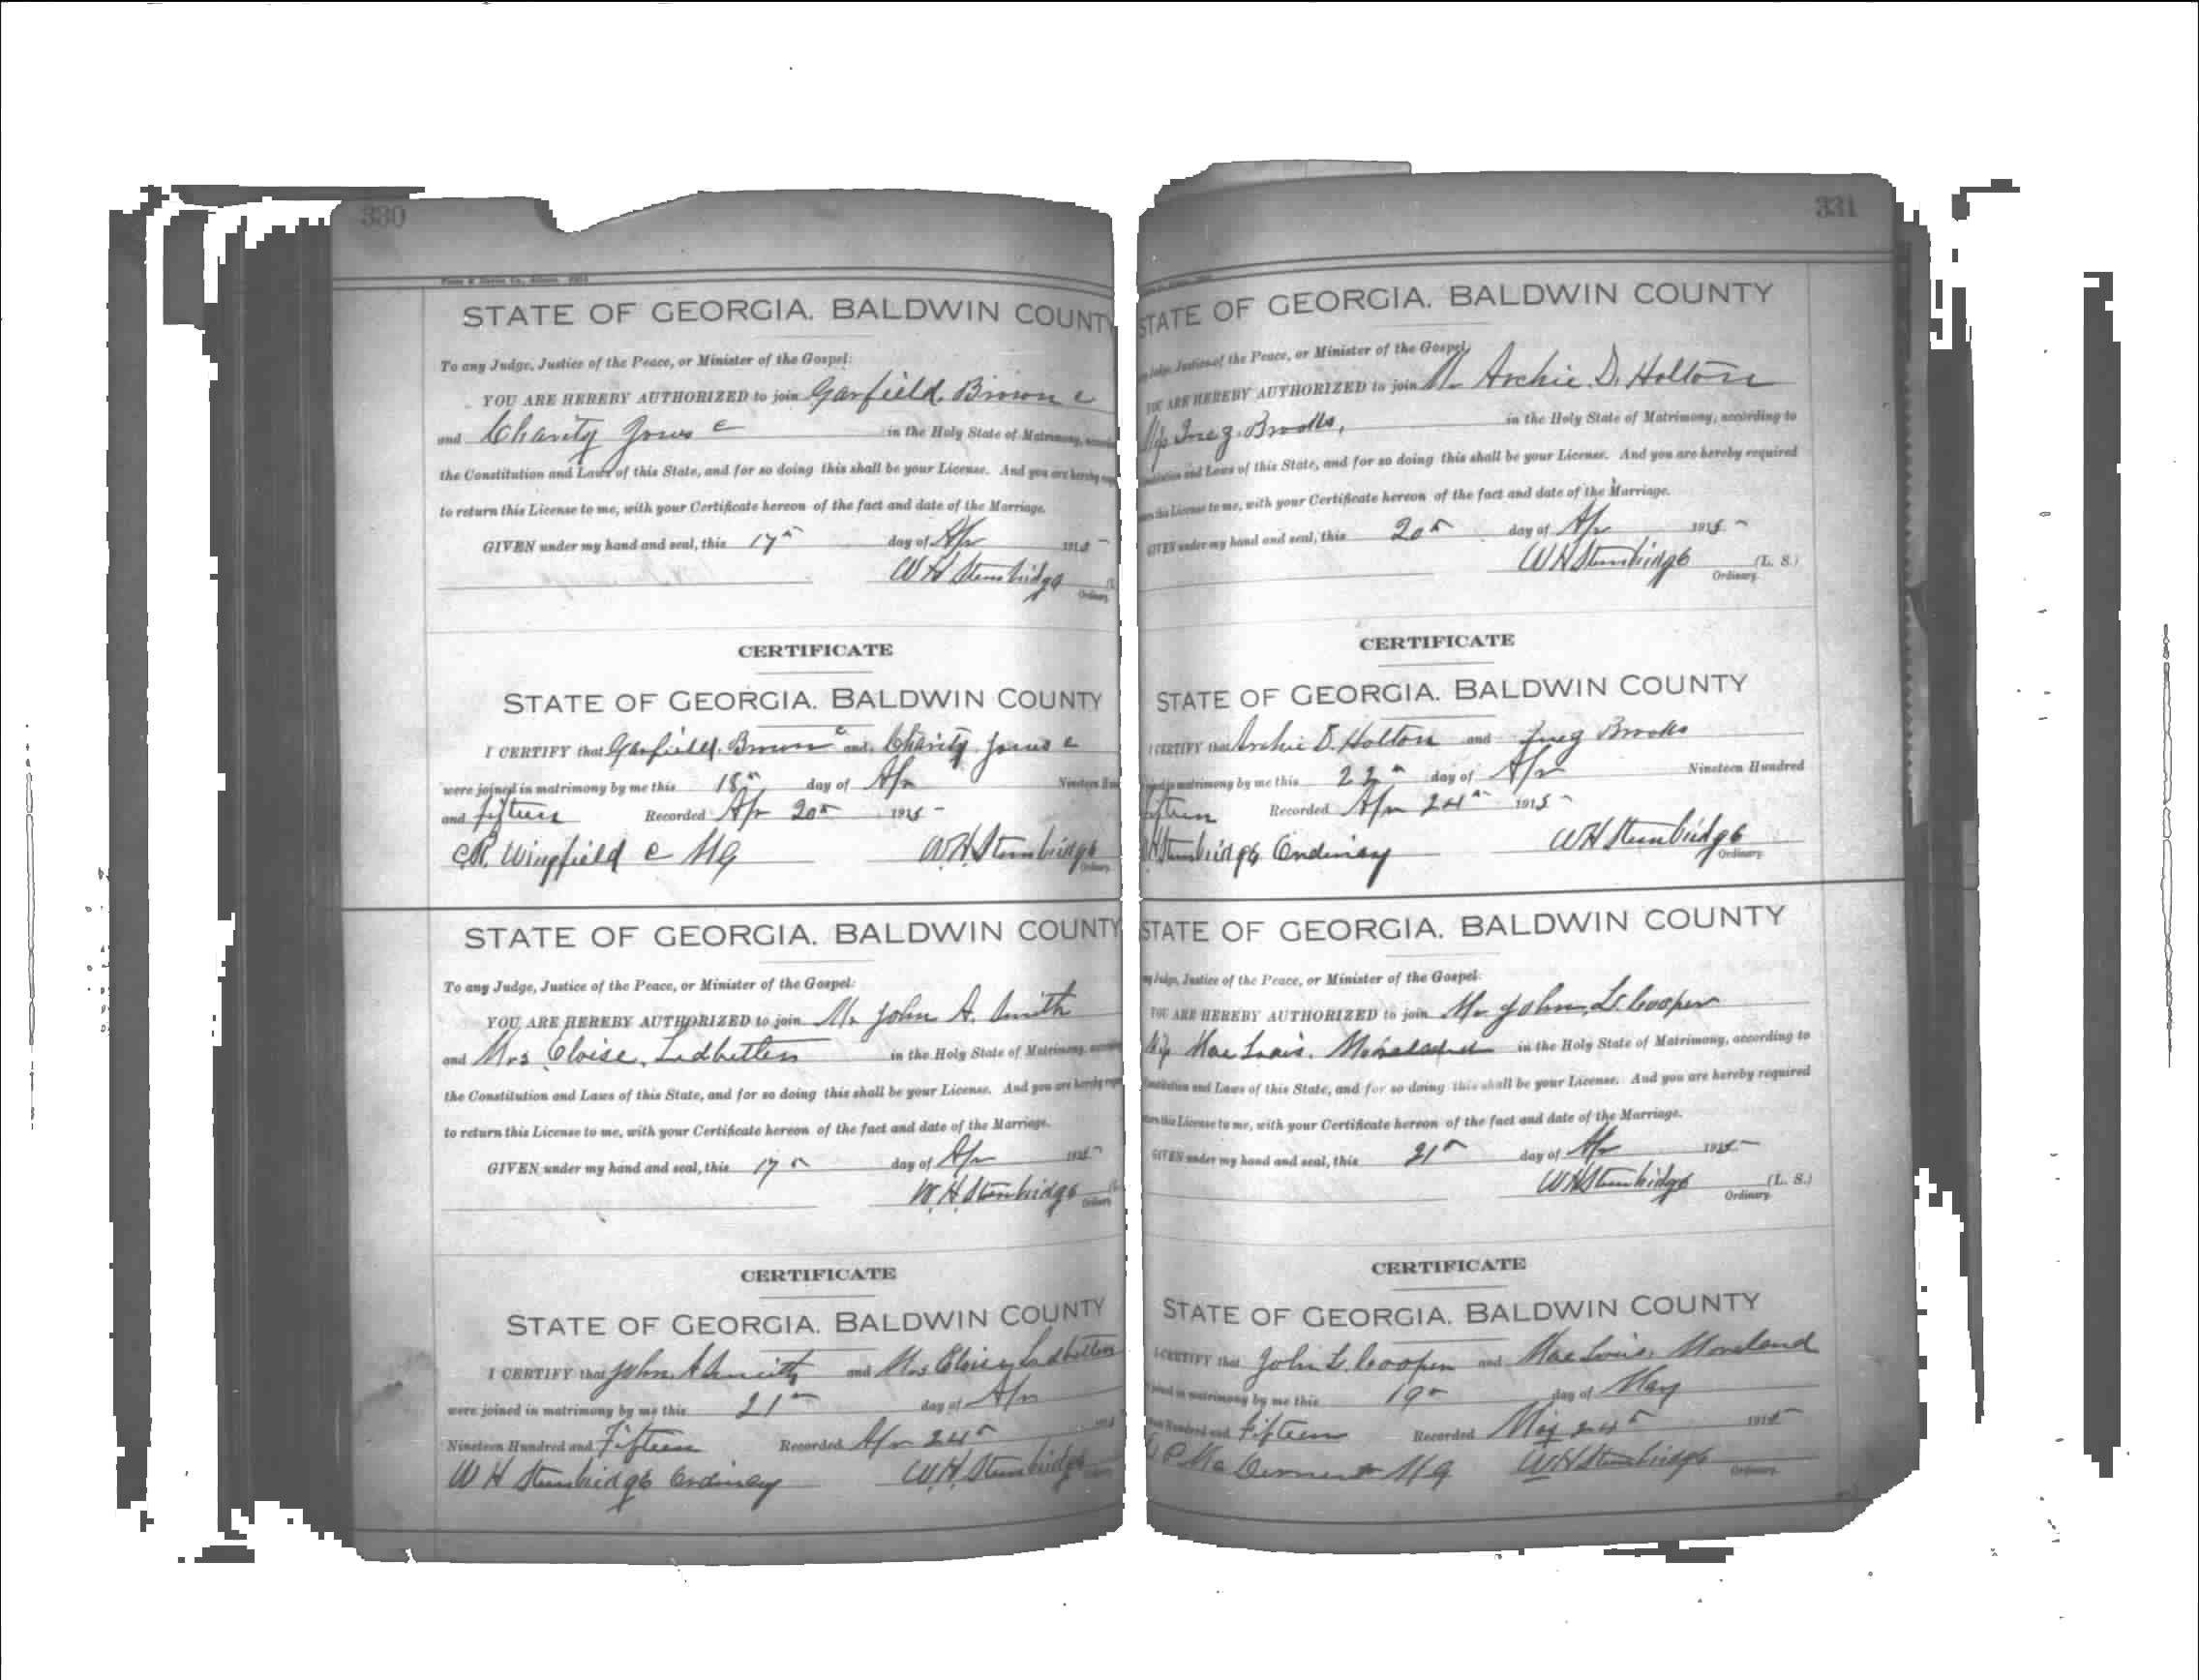 330
STATE OF GEORGIA. BALDWIN COUNTY
To any Judge, Justice of the Peace, or Minister of the Gospel:
YOU ARE HEREBY AUTHORIZED to join Garfield. Brown c
and Charity Jones c in the Holy State of Matrimony,
the Constitution and Laws of this State, and for so doing this shall be your License. And you are hereby
to return this License to me, with your Certificate hereon of the fact and date of the Marriage.
GIVEN under my hand and seal, this 17th day of Apr 1915
W H Stembridge
Ordinary
CERTIFICATE
STATE OF GEORGIA. BALDWIN COUNTY
I CERTIFY that Garfield. Brown c and Charity Jones c
were joined in matrimony by me this 18th day of Apr Nineteen
and fifteen Recorded Apr 20th 1915
C.R. Wingfield c MG W.H. Stembridge
Ordinary
STATE OF GEORGIA. BALDWIN COUNTY
To any Judge, Justice of the Peace, or Minister of the Gospel:
YOU ARE HEREBY AUTHORIZED to join Mr John A. Smith
and Mrs Eloise. Ledbetter in the Holy State of Matrimony,
the Constitution and Laws of this State, and for so doing this shall be your License. And you are hereby
to return this License to me, with your Certificate hereon of the fact and date of the Marriage.
GIVEN under my hand and seal, this 17th day of Apr 1915
W. H. Stembridge
Ordinary
CERTIFICATE
STATE OF GEORGIA. BALDWIN COUNTY
I CERTIFY that John A Smith and Mrs Eloise Ledbetter
were joined in matrimony by me this 21st day of Apr
Nineteen Hundred and Fifteen Recorded Apr 24th 1915
W H Stembridge Ordinary W.H. Stembridge
331
STATE OF GEORGIA. BALDWIN COUNTY
Judge, Justice of the Peace, or Minister of the Gospel:
YOU ARE HEREBY AUTHORIZED to join Mr Archie. D. Holton
Inez. Brooks, in the Holy State of Matrimony, according to
and Laws of this State, and for so doing this shall be your License. And you are hereby required
this License to me, with your Certificate hereon of the fact and date of the Marriage.
GIVEN under my hand and seal, this 20th day of Apr 1915
W H Stembridge (L. S.)
Ordinary
CERTIFICATE
STATE OF GEORGIA. BALDWIN COUNTY
I CERTIFY that Archie D. Holton and Inez Brooks
matrimony by me this day of Apr Nineteen Hundred
fifteen Recorded Apr 24th 1915
Stembridge Ordinary W H Stembridge
Ordinary
STATE OF GEORGIA. BALDWIN COUNTY
Judge, Justice of the Peace, or Minister of the Gospel:
YOU ARE HEREBY AUTHORIZED to join Mr John, L. Cooper
Mae Louis. Moreland in the Holy State of Matrimony, according to
Constitution and Laws of this State, and for so doing this shall be your License. And you are hereby required
this License to me, with your Certificate hereon of the fact and date of the Marriage.
GIVEN under my hand and seal, this 21st day of Apr 1915
W H Stembridge (L. S.)
Ordinary
CERTIFICATE
STATE OF GEORGIA. BALDWIN COUNTY
I CERTIFY that John L. Cooper and Mae Louis. Moreland
joined in matrimony by me this 19th day of May
Hundred and Fifteen Recorded May 24th 1915
MG W H Stembridge
Ordinary